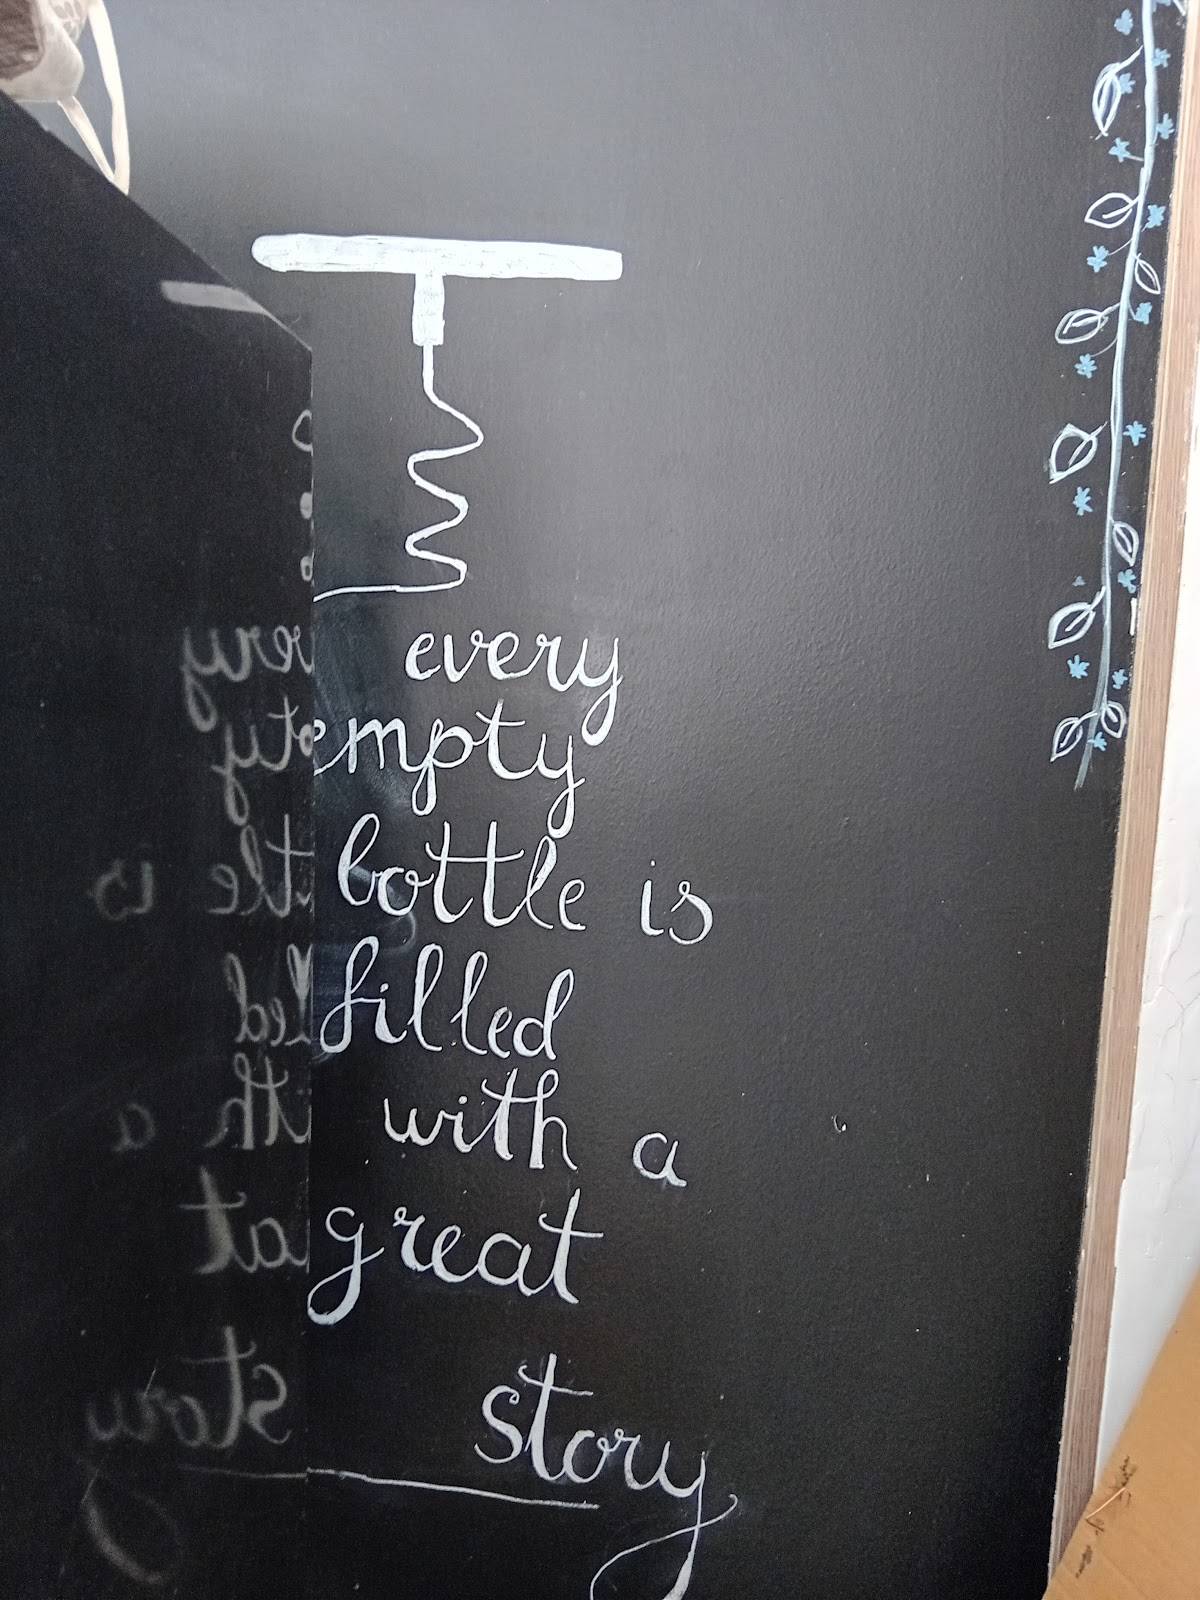 every
empty
bottle is
filled
with a
great
story